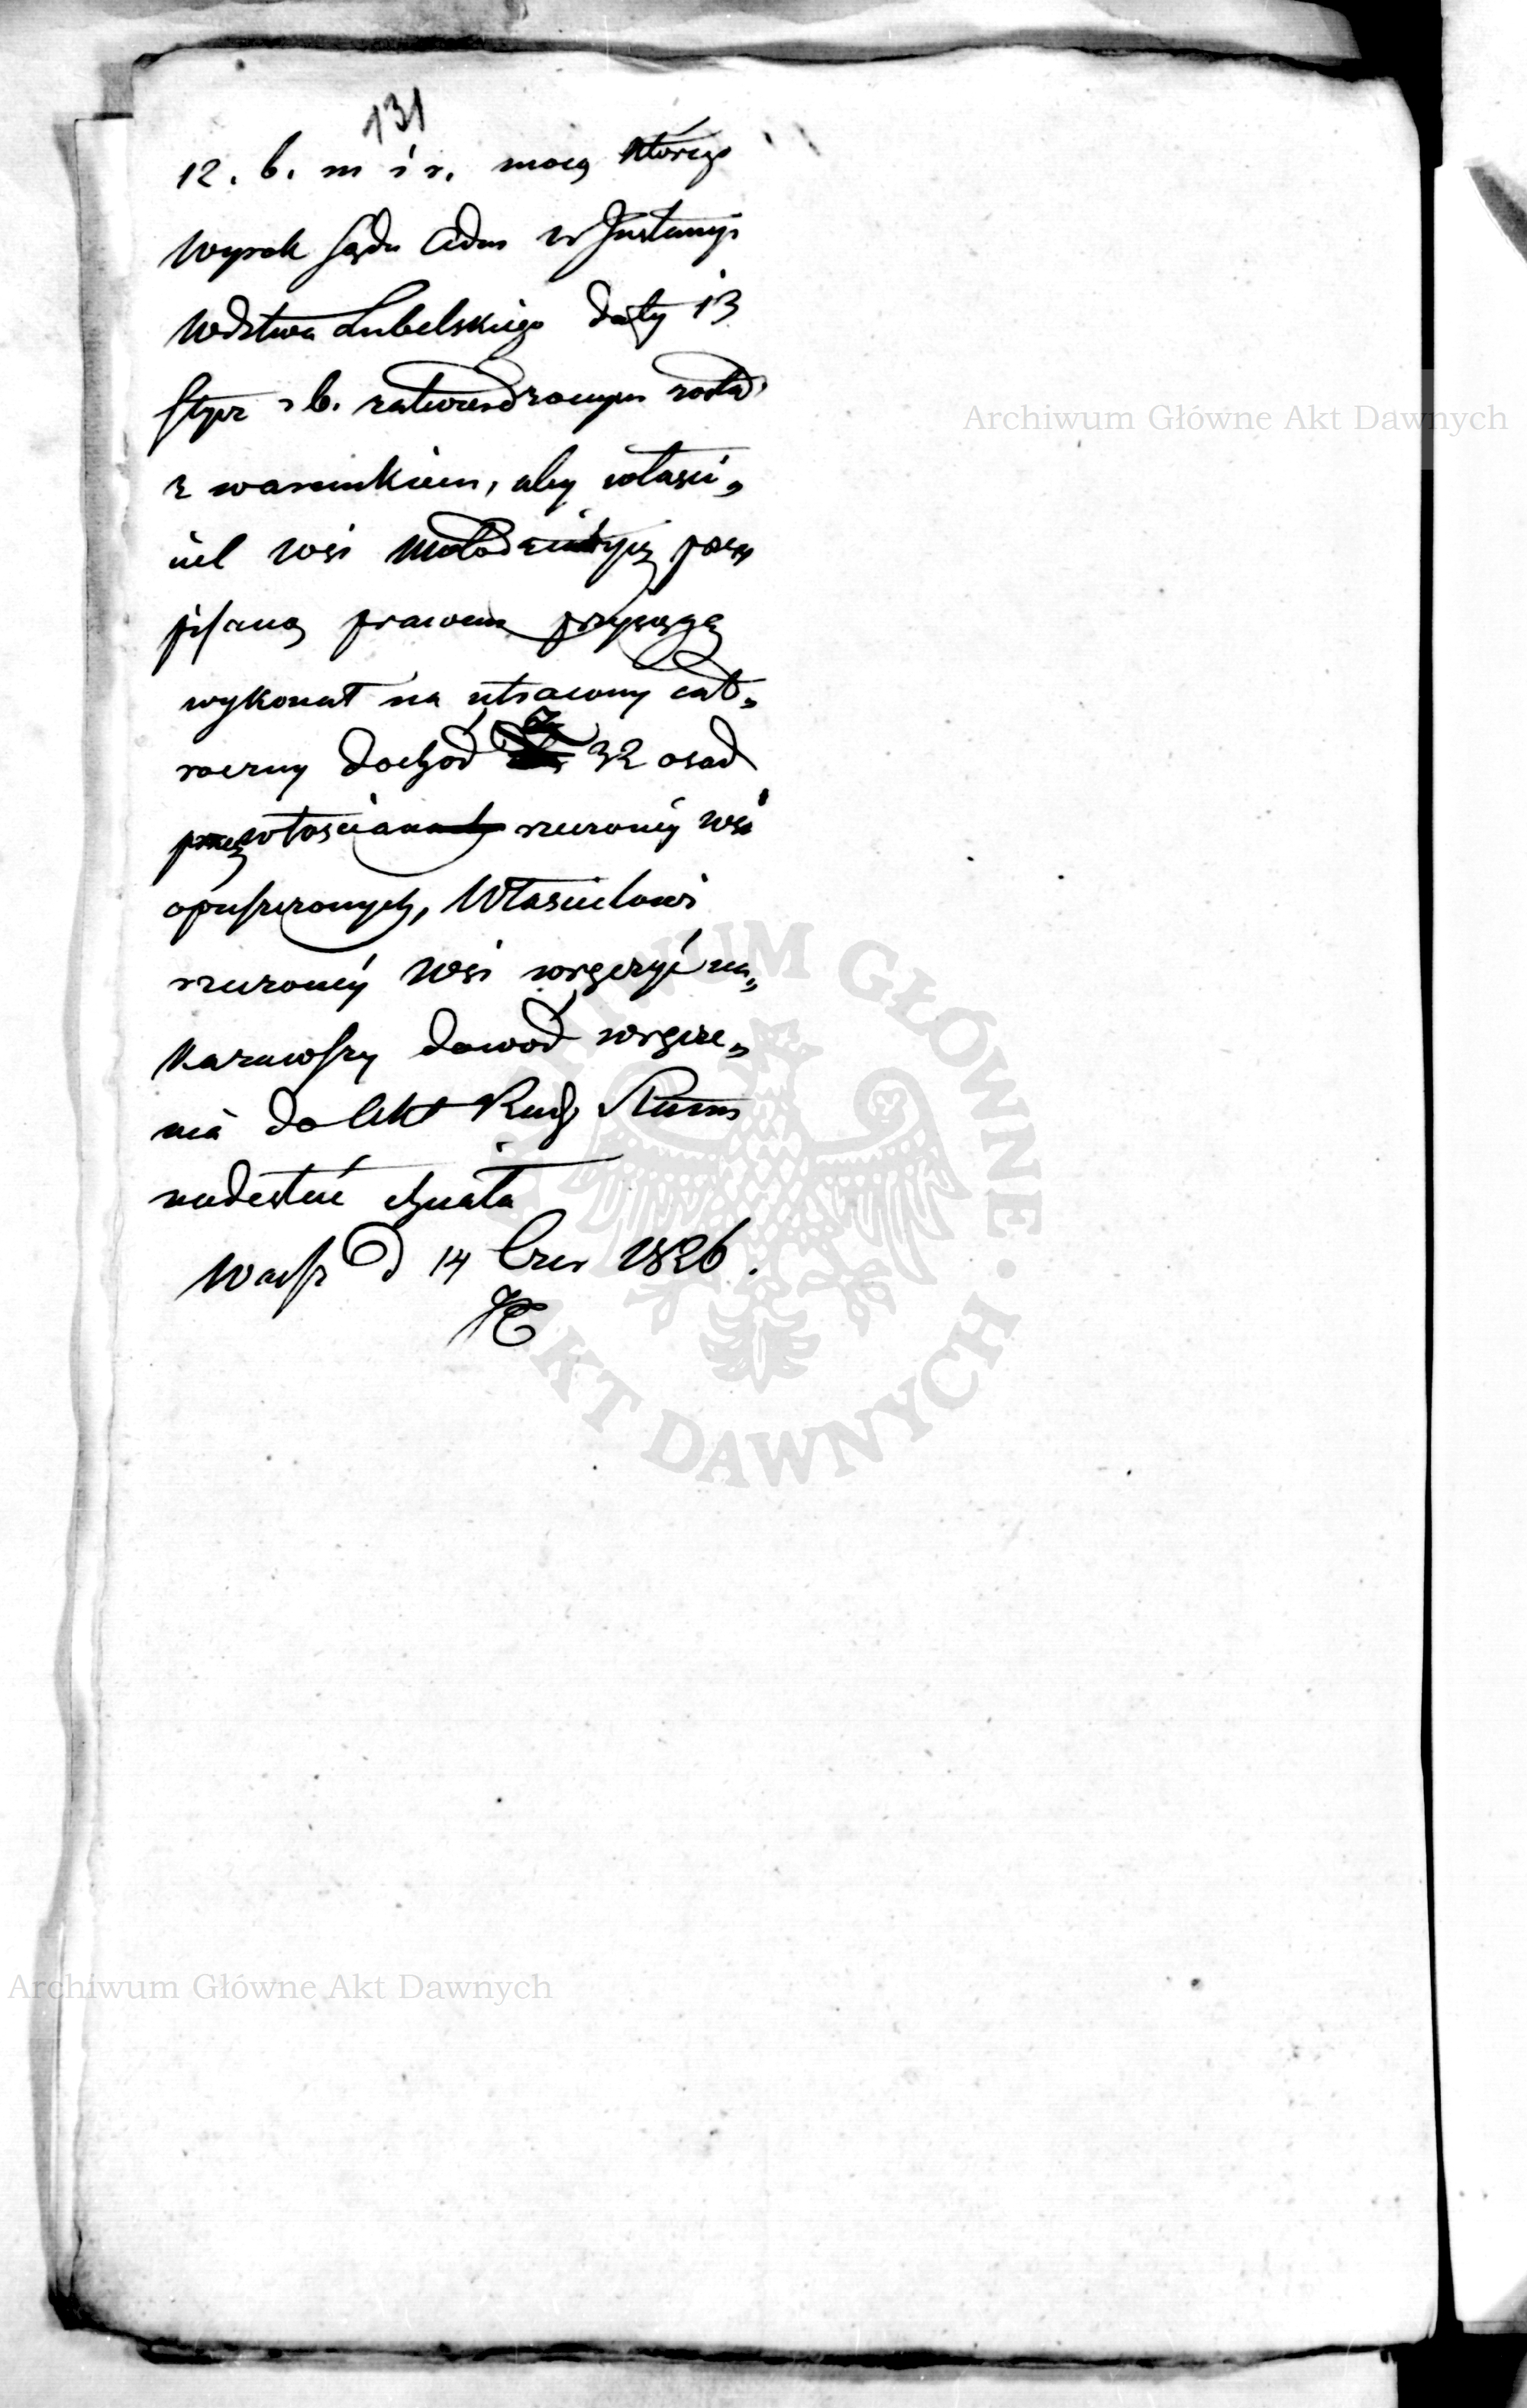 131
12. b. m i r. mocą którego
Wyrok Sądu Adm w Instancyi
Wdztwa Lubelskiego daty 13
Stycz r b. zatwierdzonym został
z warunkiem, aby właści„
ciel wsi Mołodziatycz prze
pisaną prawem przysięgę
wykonał na utracony cało„
roczny dochód z 32 osad
przez włościan rzeczonéy wsi
opuszczonych, Właścicielowi
rzeczonéy Wsi wręczyć na„
kazawszy dowód wręcze„
nia do Akt Rządz Stanu
nadesłać chciała
Warsz d 14 Czer 1826.
Archiwum Główne Akt Dawnych
ARCHIWUM GŁÓWNE AKT DAWNYCH
Archiwum Główne Akt Dawnych